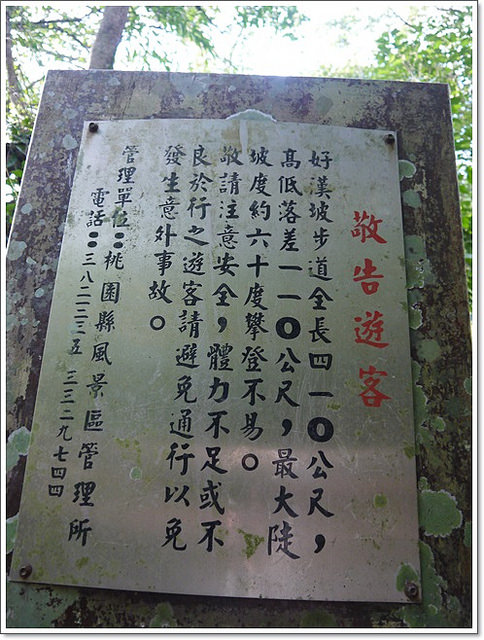 敬告遊客
好漢坡步道全長四一０公尺，
高低落差一一０公尺，最大陡
坡度約六十度攀登不易。
敬請注意安全，體力不足或不
良於行之遊客請避免通行以免
發生意外事故。
管理單位：桃園縣風景區管理所
電話：三八二二三五 三三二九七四四